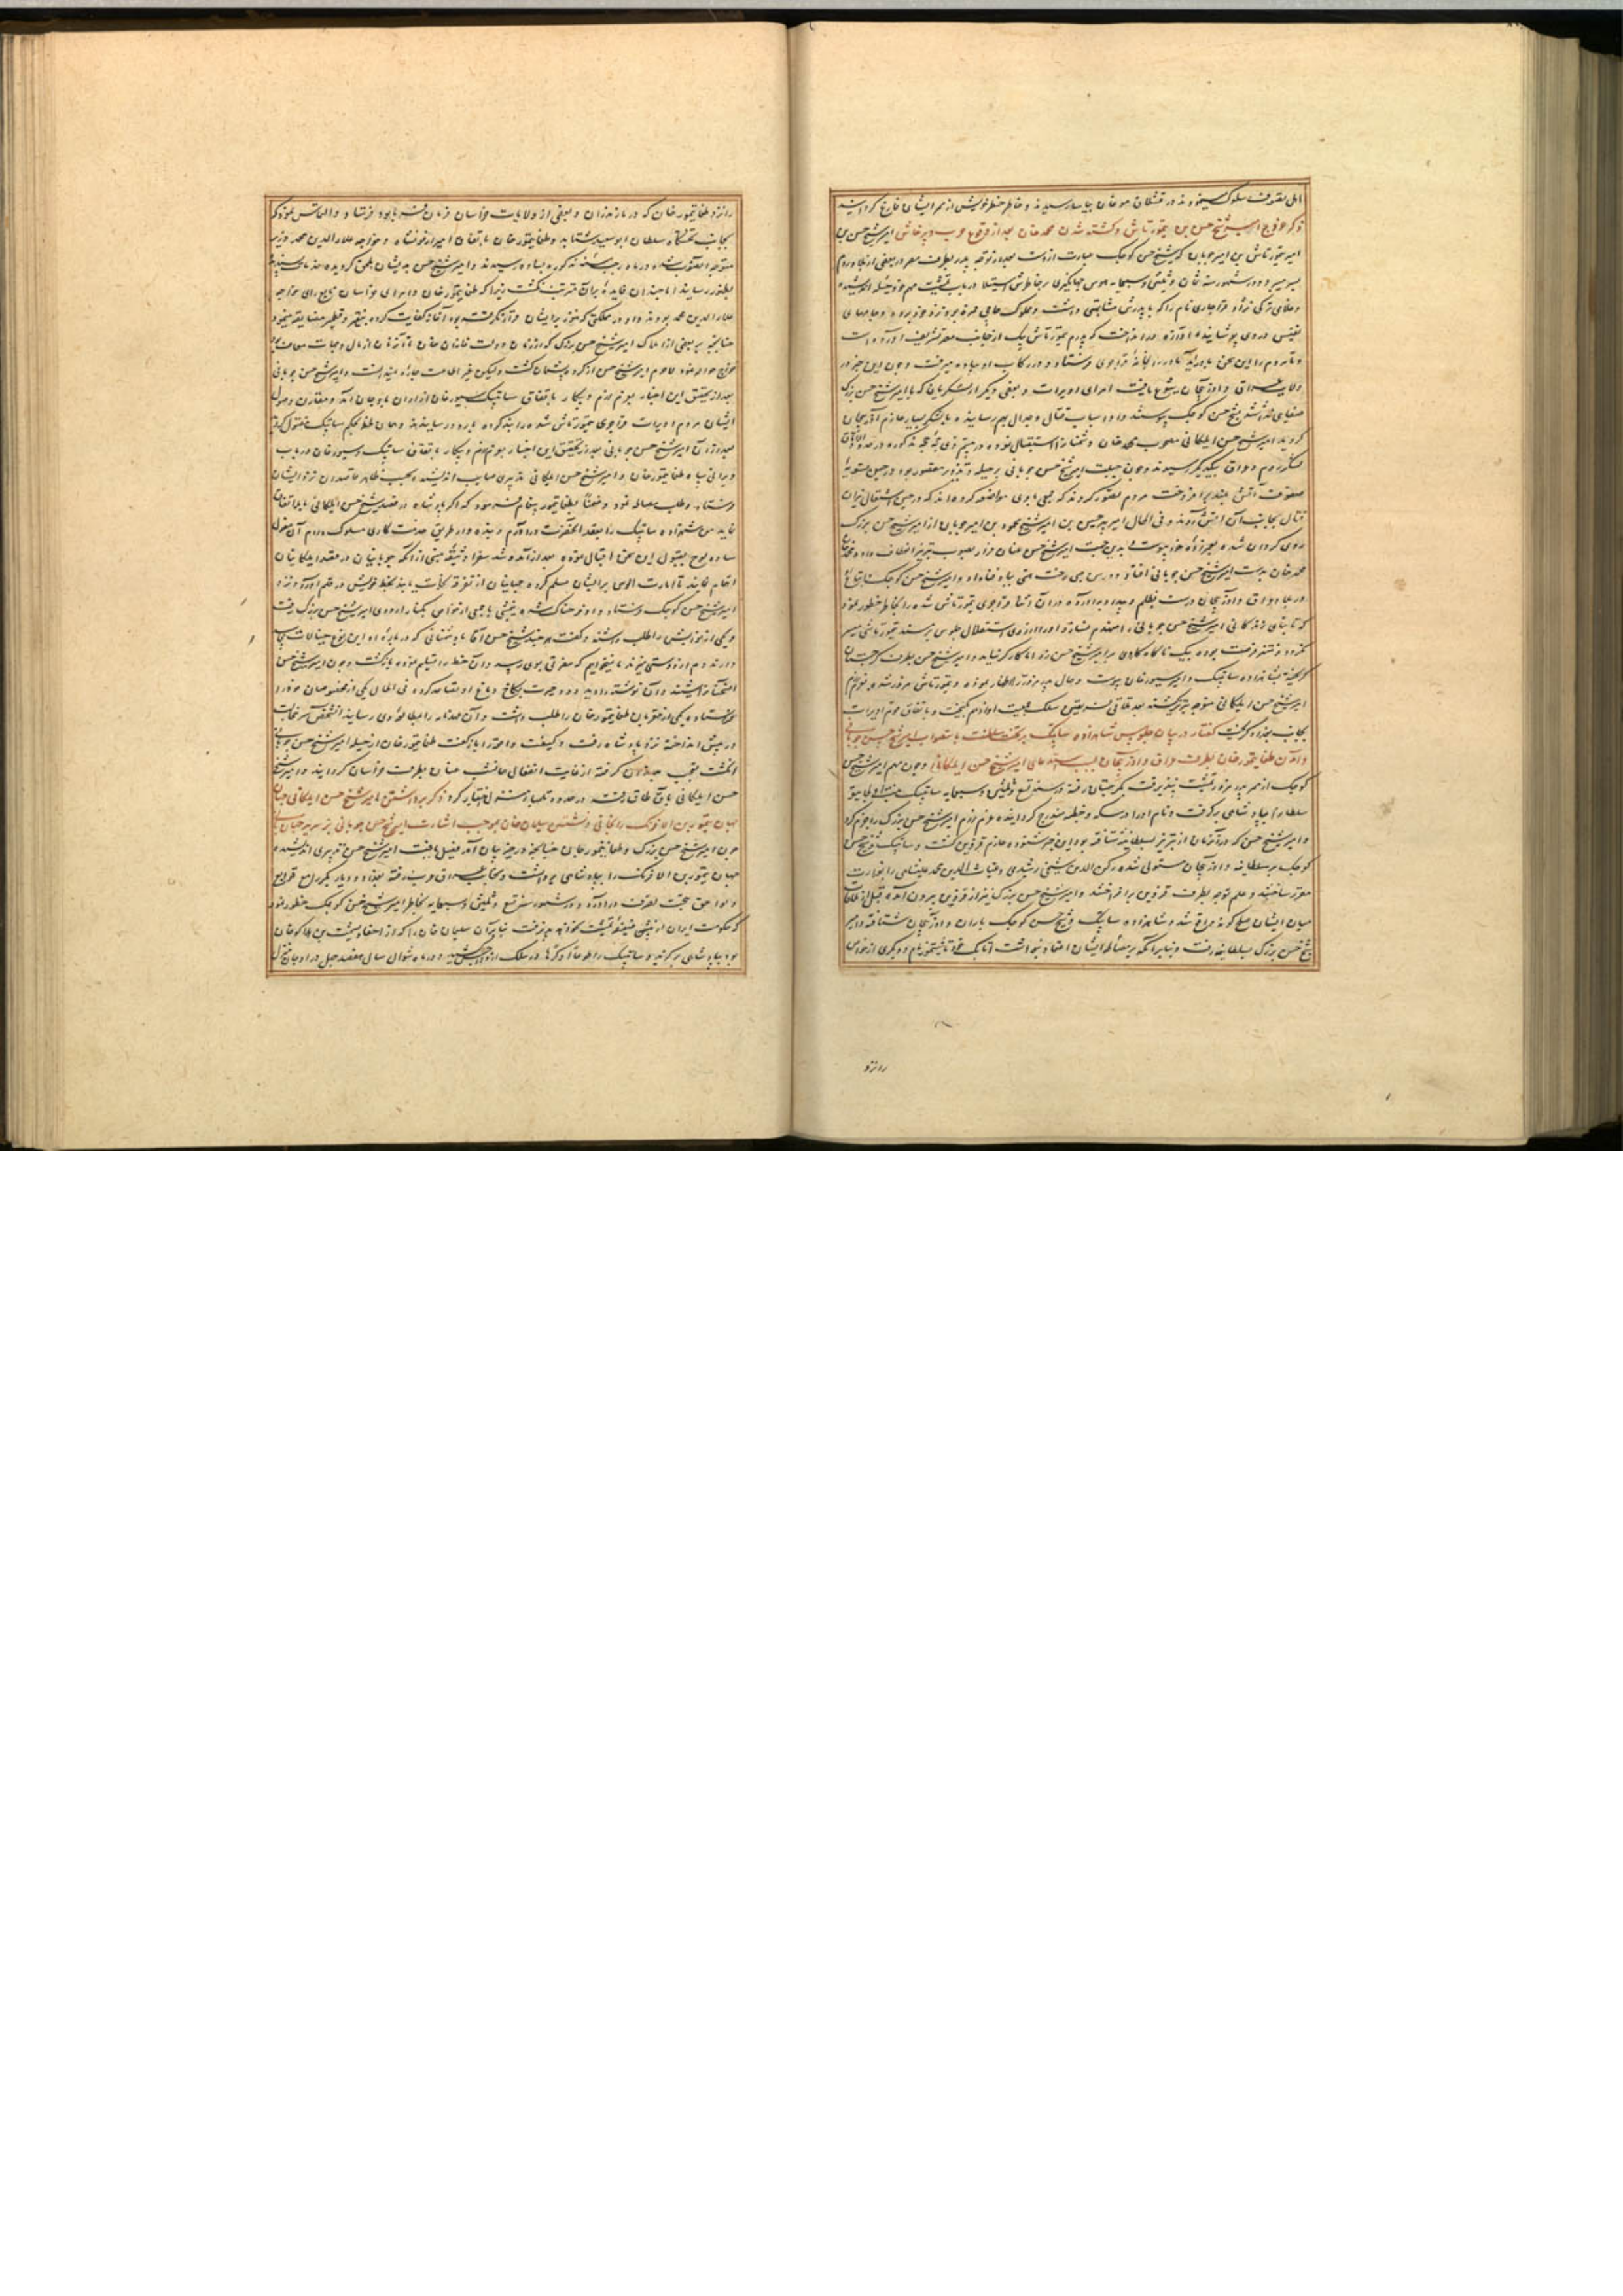 اهل تصوف سلوک مینمودند در قشلاق موغان بیاسا رسیدند و خاطر خطیر خویش از ممر ایشان فارغ گردانید
ذکر خروج امیر شیخ حسن بن تیمورتاش و کشته شدن محمد خان بعد از وقوع حرب و پرخاش امیر شیخ حسن بن
امیر تیمورتاش بن امیر چوپان که شیخ حسن کوچک عبارت ازوست بعد از توجه پدر بطرف مصر در بعضی از بلاد روم
بسر میبرد و در شهور سنه ثمان و ثلثین و سبعمایه هوس جهانگیری بر خاطرش استیلا در باب تمشیت مهم خود حیله اندیشید
و غلامی ترکی نژاد قراجری نام را که با پدرش مشابهتی داشت
نفیس در وی پوشانیده آوازه در انداخت که پدرم تیمورتاش اینک از جانب مصر تشریف آورده است
و تا مردم را این سخن باور آید مادر خود را بخانه قراجری فرستاد و در رکاب او پیاده میرفت و چون این خبر در
ولایت عراق و اذربیجان شیوع یافت امرای اویرات و بعضی دیگر از لشکریان که با امیر شیخ حسن بزرگ
صفایی نداشتند بشیخ حسن کوچک پیوستند و او اسباب قتال و جدال بهم رسانیده با لشکر بسیار عازم آذربیجان
گردید امیر شیخ حسن ایلکانی مصحوب محمد خان استقبال نموده در بیستم ذی حجه مذکوره در حدود الاتاق
لشکر روم و عراق بیکدیگر رسیدند و چون جبلت امیر شیخ حسن چوپانی بر حیله و تزویر مقصور بود در حین تسویه
صفوف آتش بلند برافروخت مردم تصور کردند که جمعی با وی مواضعه کرده‌اند که در حین اشتعال نیران
قتال بجانب آن آتش روند و فی الحال امیر پیر حسین بن امیر شیخ محمود بن امیر چوپان از امیر شیخ حسن بزرگ
روی گردان شده بعم زاده خود پیوست و بدین جهت امیر شیخ حسن عنان فرار بصوب تبریز انعطاف داده
محمد خان بدست امیر شیخ حسن چوپانی افتاد و درین حین رخت هستی بباد فنا داد و امیر شیخ حسن کوچک با اتباع
در بلاد عراق و اذربیجان دست بظلم و بیداد برآورده در آن اثنا قراجری تیمورتاش شده را بخاطر خطور نمود
که تا بنای زندگانی امیر شیخ حسن چوپانی را منهدم نسازد او را آرزوی استقلال جلوس بر مسند تیمورتاشی میسر
نگردد و منتهز فرصت بوده بیک ناگاه کاردی بر امیر شیخ حسن زد اما کارگر نیامد و امیر شیخ حسن بطرف گرجستان
گریخته بشاهزاده ساتی بیک و امیر سیورغان پیوست و حال پدر مزور را اظهار نموده و تیمورتاش مزور شده بعزم رزم
امیر شیخ حسن ایلکانی متوجه تبریز گشته بعد تلاقی فریقین سلک جمعیت او از هم بگسیخت و باتفاق قوم اویرات
بجانب بغداد گریخت گفتار در بیان جلوس شاهزاده ساتی بیک بر تخت سلطنت باستصواب امیر شیخ حسن چوپانی
و آمدن طغاتیمور خان بطرف عراق و اذربیجان بسبب استدعای امیر شیخ حسن ایلکانی و چون مهم امیر شیخ حسن
کوچک از ممر پدر مزور تمشیت نپذیرفت بگرجستان رفته در سنه تسع و ثلثین و سبعمایه ساتی بیک بنت اولجایتو
سلطان را بپادشاهی برگرفت و نام او را در سکه و خطبه مندرج گردانیده عزم رزم امیر شیخ حسن بزرگ را جزم کرد
و امیر شیخ حسن که در آن زمان از تبریز بسلطانیه شتافته بود این خبر شنوده عازم قزوین گشت و ساتی بیک و شیخ حسن
کوچک بر سلطانیه و اذربیجان مستولی شده رکن الدین شیخی رشیدی و غیاث الدین محمد علیشاهی را بوزارت
معزز ساختند و علم توجه بطرف قزوین برافراختند و امیر شیخ حسن بزرگ نیز از قزوین بیرون آمده قبل از ملاقات
میان ایشان صلح گونه واقع شد و شاهزاده ساتی بیک و شیخ حسن کوچک باران و اذربیجان شتافته و امیر
شیخ حسن بزرگ بسلطانیه رفت و بنابر آنکه بر مصالحه ایشان اعتماد نداشت اتابک و دیگری از خواص
را نزد
را نزد طغاتیمور خان که در مازندران و بعضی از ولایات خراسان فرمان فرما بود فرستاد و التماس نمود که
بجانب تختگاه سلطان ابوسعید شتابد و طغاتیمور خان باتفاق امیر ارغونشاه و خواجه علاء الدین محمد وزیر
متوجه آنصوب شده در ماه رجب سنه مذکوره بساوه رسیدند و امیر شیخ حسن بدیشان ملحق گردیده خدمات پسندیده
بظهور رسانید اما چندان فایده بر آن مترتب نگشت زیرا که طغاتیمور خان و امرای خراسان تابع رای خواجه
علاء الدین محمد بودند و او در مملکتی که هنوز بر ایشان قرار نگرفته بود آغاز کفایت کرده بنقیر و قطمیر مضایقه مینمود
چنانچه بر بعضی از املاک امیر شیخ حسن بزرگ که از زمان دولت غازان خان تا آن زمان از مال و جهات معاف بود
خرج حواله نمود لاجرم امیر شیخ حسن از کرده پشیمان گشت ولیکن غیر اطاعت چاره نمیدانست و امیر شیخ حسن چوپانی
بعد از تحقیق این اخبار بعزم رزم و پیکار باتفاق ساتی بیک و سیورغان از اران باوجان آمد و مقارن وصول
ایشان مردم اویرات قراجری تیمورتاش شده را بند کرده به اردو رسانیدند و همان لحظه بحکم ساتی بیک مقتول گشت
بعد از آن امیر شیخ حسن چوپانی بعد از تحقیق این اخبار بعزم رزم و پیکار باتفاق ساتی بیک و سیورغان در باب
ویرانی سپاه طغاتیمور خان و امیر شیخ حسن ایلکانی تدبیری صایب اندیشید و بحسب ظاهر قاصدان نزد ایشان
فرستاد و طلب مصالحه نمود و خفیتاً بطغاتیمور پیغام فرمود که اگر پادشاه در قصد شیخ حسن ایلکانی با ما اتفاق
نماید من شهزاده ساتی بیک را بعقد آنحضرت درآورم و بنده وار طریق خدمت کاری مسلوک دارم آن مغول
ساده لوح بقبول این سخن اقبال نموده بعد از آمد و شد سفرا وثیقه مبنی از آنکه چوپانیان در قصد ایلکانیان
اقدام نمایند تا امارت الوس بر ایشان مسلم گردد بخط خویش در قلم آورده نزد
امیر شیخ حسن کوچک فرستاد و او فرحناک شده شبی با جمعی از خواص بکنار اردوی امیر شیخ حسن بزرگ رفت
و یکی از نوکرانش را طلب داشته و گفت هر چند شیخ حسن آقا با دشمنانی که درباره او این نوع خیالات بجای
دارند دم از دوستی میزند ما نمیخواهیم که مضرتی بوی رسد و آن خط را تسلیم نموده بازگشت و چون امیر شیخ حسن
آن نوشته را دید دود حیرت بکاخ دماغ او تصاعد کرده فی الحال یکی از مخصوصان خود را
فرستاده یکی از مقربان طغاتیمور خان را طلب داشت و آن عهدنامه را بمطالعه وی رسانید آنشخص سر خجالت
در پیش انداخته نزد پادشاه رفت و کیفیت واقعه را باز گفت طغاتیمور خان از حیله امیر شیخ حسن چوپانی
انگشت تعجب بدندان گرفته از غایت انفعال همان شب عنان بطرف خراسان گردانید و امیر شیخ
حسن ایلکانی رفته در حدود اختیار کرد ذکر برداشتن امیر شیخ حسن ایلکانی جهان
جهان تیمور بن الافرنگ را بخانی و نشستن سلیمان خان بموجب اشارت امیر شیخ حسن چوپانی بر سریر جهانبانی
چون امیر شیخ حسن بزرگ و طغاتیمور خان چنانچه در حیز بیان آمد فیصل یافت امیر شیخ حسن تدبیری اندیشیده
جهان تیمور بن الافرنگ را بپادشاهی برداشت و بجانب عراق عرب رفته بغداد و دیار بکر را مع توابع
و لواحق بتحت تصرف درآورد و در شهور سنه تسع و ثلثین و سبعمایه بخاطر امیر شیخ حسن کوچک خطور نمود
که حکومت ایران از پیش ضعیفه تمشیت نخواهد پذیرفت بنابر آن سلیمان خان را که از احفاد یشمت بن هلاکو خان
بود بپادشاهی برگزید و ساتی بیک را طوعاً او کرهاً در سلک ازدواجش کشید و در ماه شوال سال هفتصد و چهل در اوجان